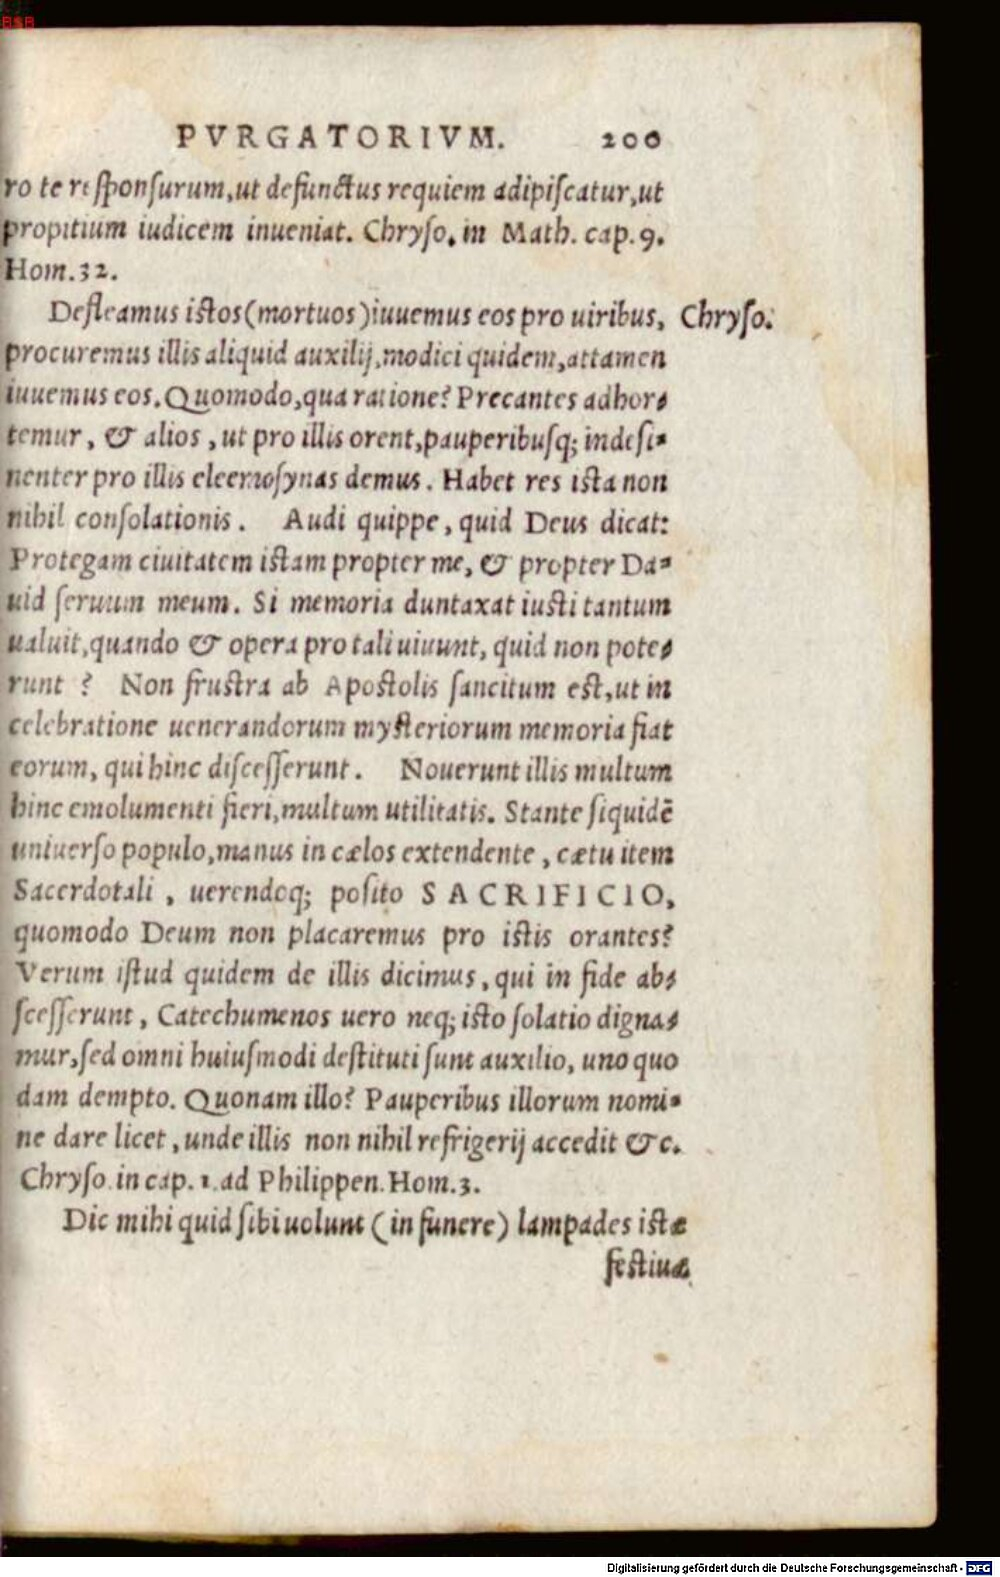 BSB
PVRGATORIVM. 200
ro te responsurum, ut defunctus requiem adipiscatur, ut
propitium iudicem inueniat. Chryso. in Math. cap. 9.
Hom. 32.
Defleamus istos (mortuos) iuuemus eos pro uiribus, Chryso.
procuremus illis aliquid auxilij, modici quidem, attamen
iuuemus eos. Quomodo, qua ratione? Precantes adhor⸗
temur, & alios, ut pro illis orent, pauperibusq; indesi⸗
nenter pro illis eleemosynas demus. Habet res ista non
nihil consolationis. Audi quippe, quid Deus dicat:
Protegam ciuitatem istam propter me, & propter Da⸗
uid seruum meum. Si memoria duntaxat iusti tantum
ualuit, quando & opera pro tali uiuunt, quid non pote⸗
runt ? Non frustra ab Apostolis sancitum est, ut in
celebratione uenerandorum mysteriorum memoria fiat
eorum, qui hinc discesserunt. Nouerunt illis multum
hinc emolumenti fieri, multum utilitatis. Stante siquidē
uniuerso populo, manus in cælos extendente, cætu item
Sacerdotali, uerendoq; posito SACRIFICIO,
quomodo Deum non placaremus pro istis orantes?
Verum istud quidem de illis dicimus, qui in fide ab⸗
scesserunt, Catechumenos uero neq; isto solatio digna⸗
mur, sed omni huiusmodi destituti sunt auxilio, uno quo
dam dempto. Quonam illo? Pauperibus illorum nomi⸗
ne dare licet, unde illis non nihil refrigerij accedit &c.
Chryso. in cap. 1. ad Philippen. Hom. 3.
Dic mihi quid sibi uolunt (in funere) lampades istæ
festiuæ
Digitalisierung gefördert durch die Deutsche Forschungsgemeinschaft - DFG